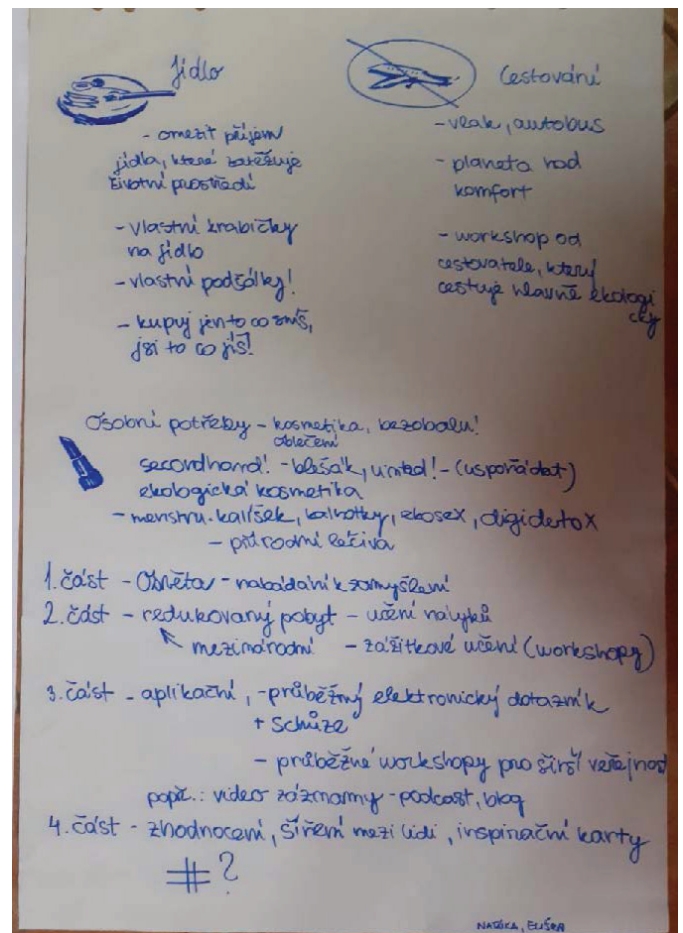 Jídlo
- omezit příjem
jídla, které zatěžuje
životní prostředí
- vlastní krabičky
na jídlo
- vlastní podšálky!
- kupuj jen to co smíš,
jsi to co jíš!
Cestování
- vlak, autobus
- planeta nad
komfort
- workshop od
cestovatele, který
cestuje hlavně ekologi
cky
Osobní potřeby - kosmetika, bezobalu!
oblečení
secondhand! - blešák, umted! - (uspořádat)
ekologická kosmetika
- menstru. kalíšek, kalhotky, ekosex, digidetox
- přírodní léčiva
1. část - Osvěta - nabádání k zamyšlení
2. část - redukovaný pobyt - učení návyků
mezinárodní - zážitkové učení (workshopy)
3. část - aplikační, - průběžný elektronický dotazník
+ schůze
- průběžné workshopy pro širší veřejnost
popř.: video záznamy - podcast, blog
4. část - zhodnocení, šíření mezi lidi, inspirační karty
#?
ELIŠKA